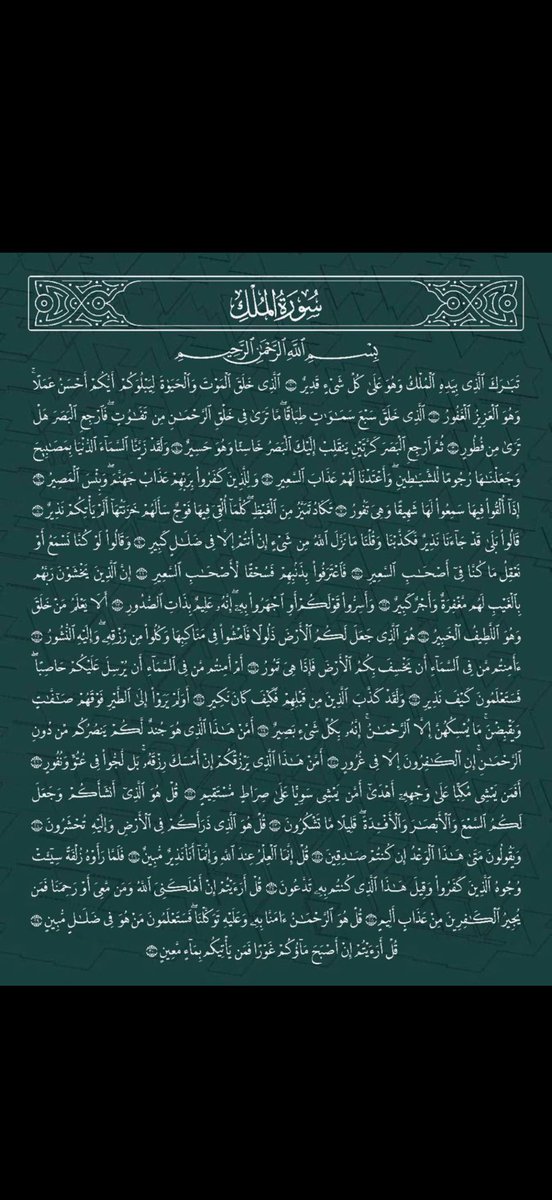 سُورَةُ المُلْكِ
بِسْمِ ٱللَّهِ ٱلرَّحْمَٰنِ ٱلرَّحِيمِ
تَبَٰرَكَ ٱلَّذِى بِيَدِهِ ٱلْمُلْكُ وَهُوَ عَلَىٰ كُلِّ شَىْءٍ قَدِيرٌ ۝١ ٱلَّذِى خَلَقَ ٱلْمَوْتَ وَٱلْحَيَوٰةَ لِيَبْلُوَكُمْ أَيُّكُمْ أَحْسَنُ عَمَلًا ۚ
وَهُوَ ٱلْعَزِيزُ ٱلْغَفُورُ ۝٢ ٱلَّذِى خَلَقَ سَبْعَ سَمَٰوَٰتٍ طِبَاقًا ۖ مَّا تَرَىٰ فِى خَلْقِ ٱلرَّحْمَٰنِ مِن تَفَٰوُتٍ ۖ فَٱرْجِعِ ٱلْبَصَرَ هَلْ
تَرَىٰ مِن فُطُورٍ ۝٣ ثُمَّ ٱرْجِعِ ٱلْبَصَرَ كَرَّتَيْنِ يَنقَلِبْ إِلَيْكَ ٱلْبَصَرُ خَاسِئًا وَهُوَ حَسِيرٌ ۝٤ وَلَقَدْ زَيَّنَّا ٱلسَّمَآءَ ٱلدُّنْيَا بِمَصَٰبِيحَ
وَجَعَلْنَٰهَا رُجُومًا لِّلشَّيَٰطِينِ ۖ وَأَعْتَدْنَا لَهُمْ عَذَابَ ٱلسَّعِيرِ ۝٥ وَلِلَّذِينَ كَفَرُوا۟ بِرَبِّهِمْ عَذَابُ جَهَنَّمَ ۖ وَبِئْسَ ٱلْمَصِيرُ ۝٦
إِذَآ أُلْقُوا۟ فِيهَا سَمِعُوا۟ لَهَا شَهِيقًا وَهِىَ تَفُورُ ۝٧ تَكَادُ تَمَيَّزُ مِنَ ٱلْغَيْظِ ۖ كُلَّمَآ أُلْقِىَ فِيهَا فَوْجٌ سَأَلَهُمْ خَزَنَتُهَآ أَلَمْ يَأْتِكُمْ نَذِيرٌ ۝٨
قَالُوا۟ بَلَىٰ قَدْ جَآءَنَا نَذِيرٌ فَكَذَّبْنَا وَقُلْنَا مَا نَزَّلَ ٱللَّهُ مِن شَىْءٍ إِنْ أَنتُمْ إِلَّا فِى ضَلَٰلٍ كَبِيرٍ ۝٩ وَقَالُوا۟ لَوْ كُنَّا نَسْمَعُ أَوْ
نَعْقِلُ مَا كُنَّا فِىٓ أَصْحَٰبِ ٱلسَّعِيرِ ۝١٠ فَٱعْتَرَفُوا۟ بِذَنۢبِهِمْ فَسُحْقًا لِّأَصْحَٰبِ ٱلسَّعِيرِ ۝١١ إِنَّ ٱلَّذِينَ يَخْشَوْنَ رَبَّهُم
بِٱلْغَيْبِ لَهُم مَّغْفِرَةٌ وَأَجْرٌ كَبِيرٌ ۝١٢ وَأَسِرُّوا۟ قَوْلَكُمْ أَوِ ٱجْهَرُوا۟ بِهِۦٓ ۖ إِنَّهُۥ عَلِيمٌۢ بِذَاتِ ٱلصُّدُورِ ۝١٣ أَلَا يَعْلَمُ مَنْ خَلَقَ
وَهُوَ ٱللَّطِيفُ ٱلْخَبِيرُ ۝١٤ هُوَ ٱلَّذِى جَعَلَ لَكُمُ ٱلْأَرْضَ ذَلُولًا فَٱمْشُوا۟ فِى مَنَاكِبِهَا وَكُلُوا۟ مِن رِّزْقِهِۦ ۖ وَإِلَيْهِ ٱلنُّشُورُ ۝١٥
ءَأَمِنتُم مَّن فِى ٱلسَّمَآءِ أَن يَخْسِفَ بِكُمُ ٱلْأَرْضَ فَإِذَا هِىَ تَمُورُ ۝١٦ أَمْ أَمِنتُم مَّن فِى ٱلسَّمَآءِ أَن يُرْسِلَ عَلَيْكُمْ حَاصِبًا ۖ
فَسَتَعْلَمُونَ كَيْفَ نَذِيرِ ۝١٧ وَلَقَدْ كَذَّبَ ٱلَّذِينَ مِن قَبْلِهِمْ فَكَيْفَ كَانَ نَكِيرِ ۝١٨ أَوَلَمْ يَرَوْا۟ إِلَى ٱلطَّيْرِ فَوْقَهُمْ صَٰٓفَّٰتٍ
وَيَقْبِضْنَ ۚ مَا يُمْسِكُهُنَّ إِلَّا ٱلرَّحْمَٰنُ ۚ إِنَّهُۥ بِكُلِّ شَىْءٍۭ بَصِيرٌ ۝١٩ أَمَّنْ هَٰذَا ٱلَّذِى هُوَ جُندٌ لَّكُمْ يَنصُرُكُم مِّن دُونِ
ٱلرَّحْمَٰنِ ۚ إِنِ ٱلْكَٰفِرُونَ إِلَّا فِى غُرُورٍ ۝٢٠ أَمَّنْ هَٰذَا ٱلَّذِى يَرْزُقُكُمْ إِنْ أَمْسَكَ رِزْقَهُۥ ۚ بَل لَّجُّوا۟ فِى عُتُوٍّ وَنُفُورٍ ۝٢١
أَفَمَن يَمْشِى مُكِبًّا عَلَىٰ وَجْهِهِۦٓ أَهْدَىٰٓ أَمَّن يَمْشِى سَوِيًّا عَلَىٰ صِرَٰطٍ مُّسْتَقِيمٍ ۝٢٢ قُلْ هُوَ ٱلَّذِىٓ أَنشَأَكُمْ وَجَعَلَ
لَكُمُ ٱلسَّمْعَ وَٱلْأَبْصَٰرَ وَٱلْأَفْـِٔدَةَ ۖ قَلِيلًا مَّا تَشْكُرُونَ ۝٢٣ قُلْ هُوَ ٱلَّذِى ذَرَأَكُمْ فِى ٱلْأَرْضِ وَإِلَيْهِ تُحْشَرُونَ ۝٢٤
وَيَقُولُونَ مَتَىٰ هَٰذَا ٱلْوَعْدُ إِن كُنتُمْ صَٰدِقِينَ ۝٢٥ قُلْ إِنَّمَا ٱلْعِلْمُ عِندَ ٱللَّهِ وَإِنَّمَآ أَنَا۠ نَذِيرٌ مُّبِينٌ ۝٢٦ فَلَمَّا رَأَوْهُ زُلْفَةً سِيٓـَٔتْ
وُجُوهُ ٱلَّذِينَ كَفَرُوا۟ وَقِيلَ هَٰذَا ٱلَّذِى كُنتُم بِهِۦ تَدَّعُونَ ۝٢٧ قُلْ أَرَءَيْتُمْ إِنْ أَهْلَكَنِىَ ٱللَّهُ وَمَن مَّعِىَ أَوْ رَحِمَنَا فَمَن
يُجِيرُ ٱلْكَٰفِرِينَ مِنْ عَذَابٍ أَلِيمٍ ۝٢٨ قُلْ هُوَ ٱلرَّحْمَٰنُ ءَامَنَّا بِهِۦ وَعَلَيْهِ تَوَكَّلْنَا ۖ فَسَتَعْلَمُونَ مَنْ هُوَ فِى ضَلَٰلٍ مُّبِينٍ ۝٢٩
قُلْ أَرَءَيْتُمْ إِنْ أَصْبَحَ مَآؤُكُمْ غَوْرًا فَمَن يَأْتِيكُم بِمَآءٍ مَّعِينٍۭ ۝٣٠